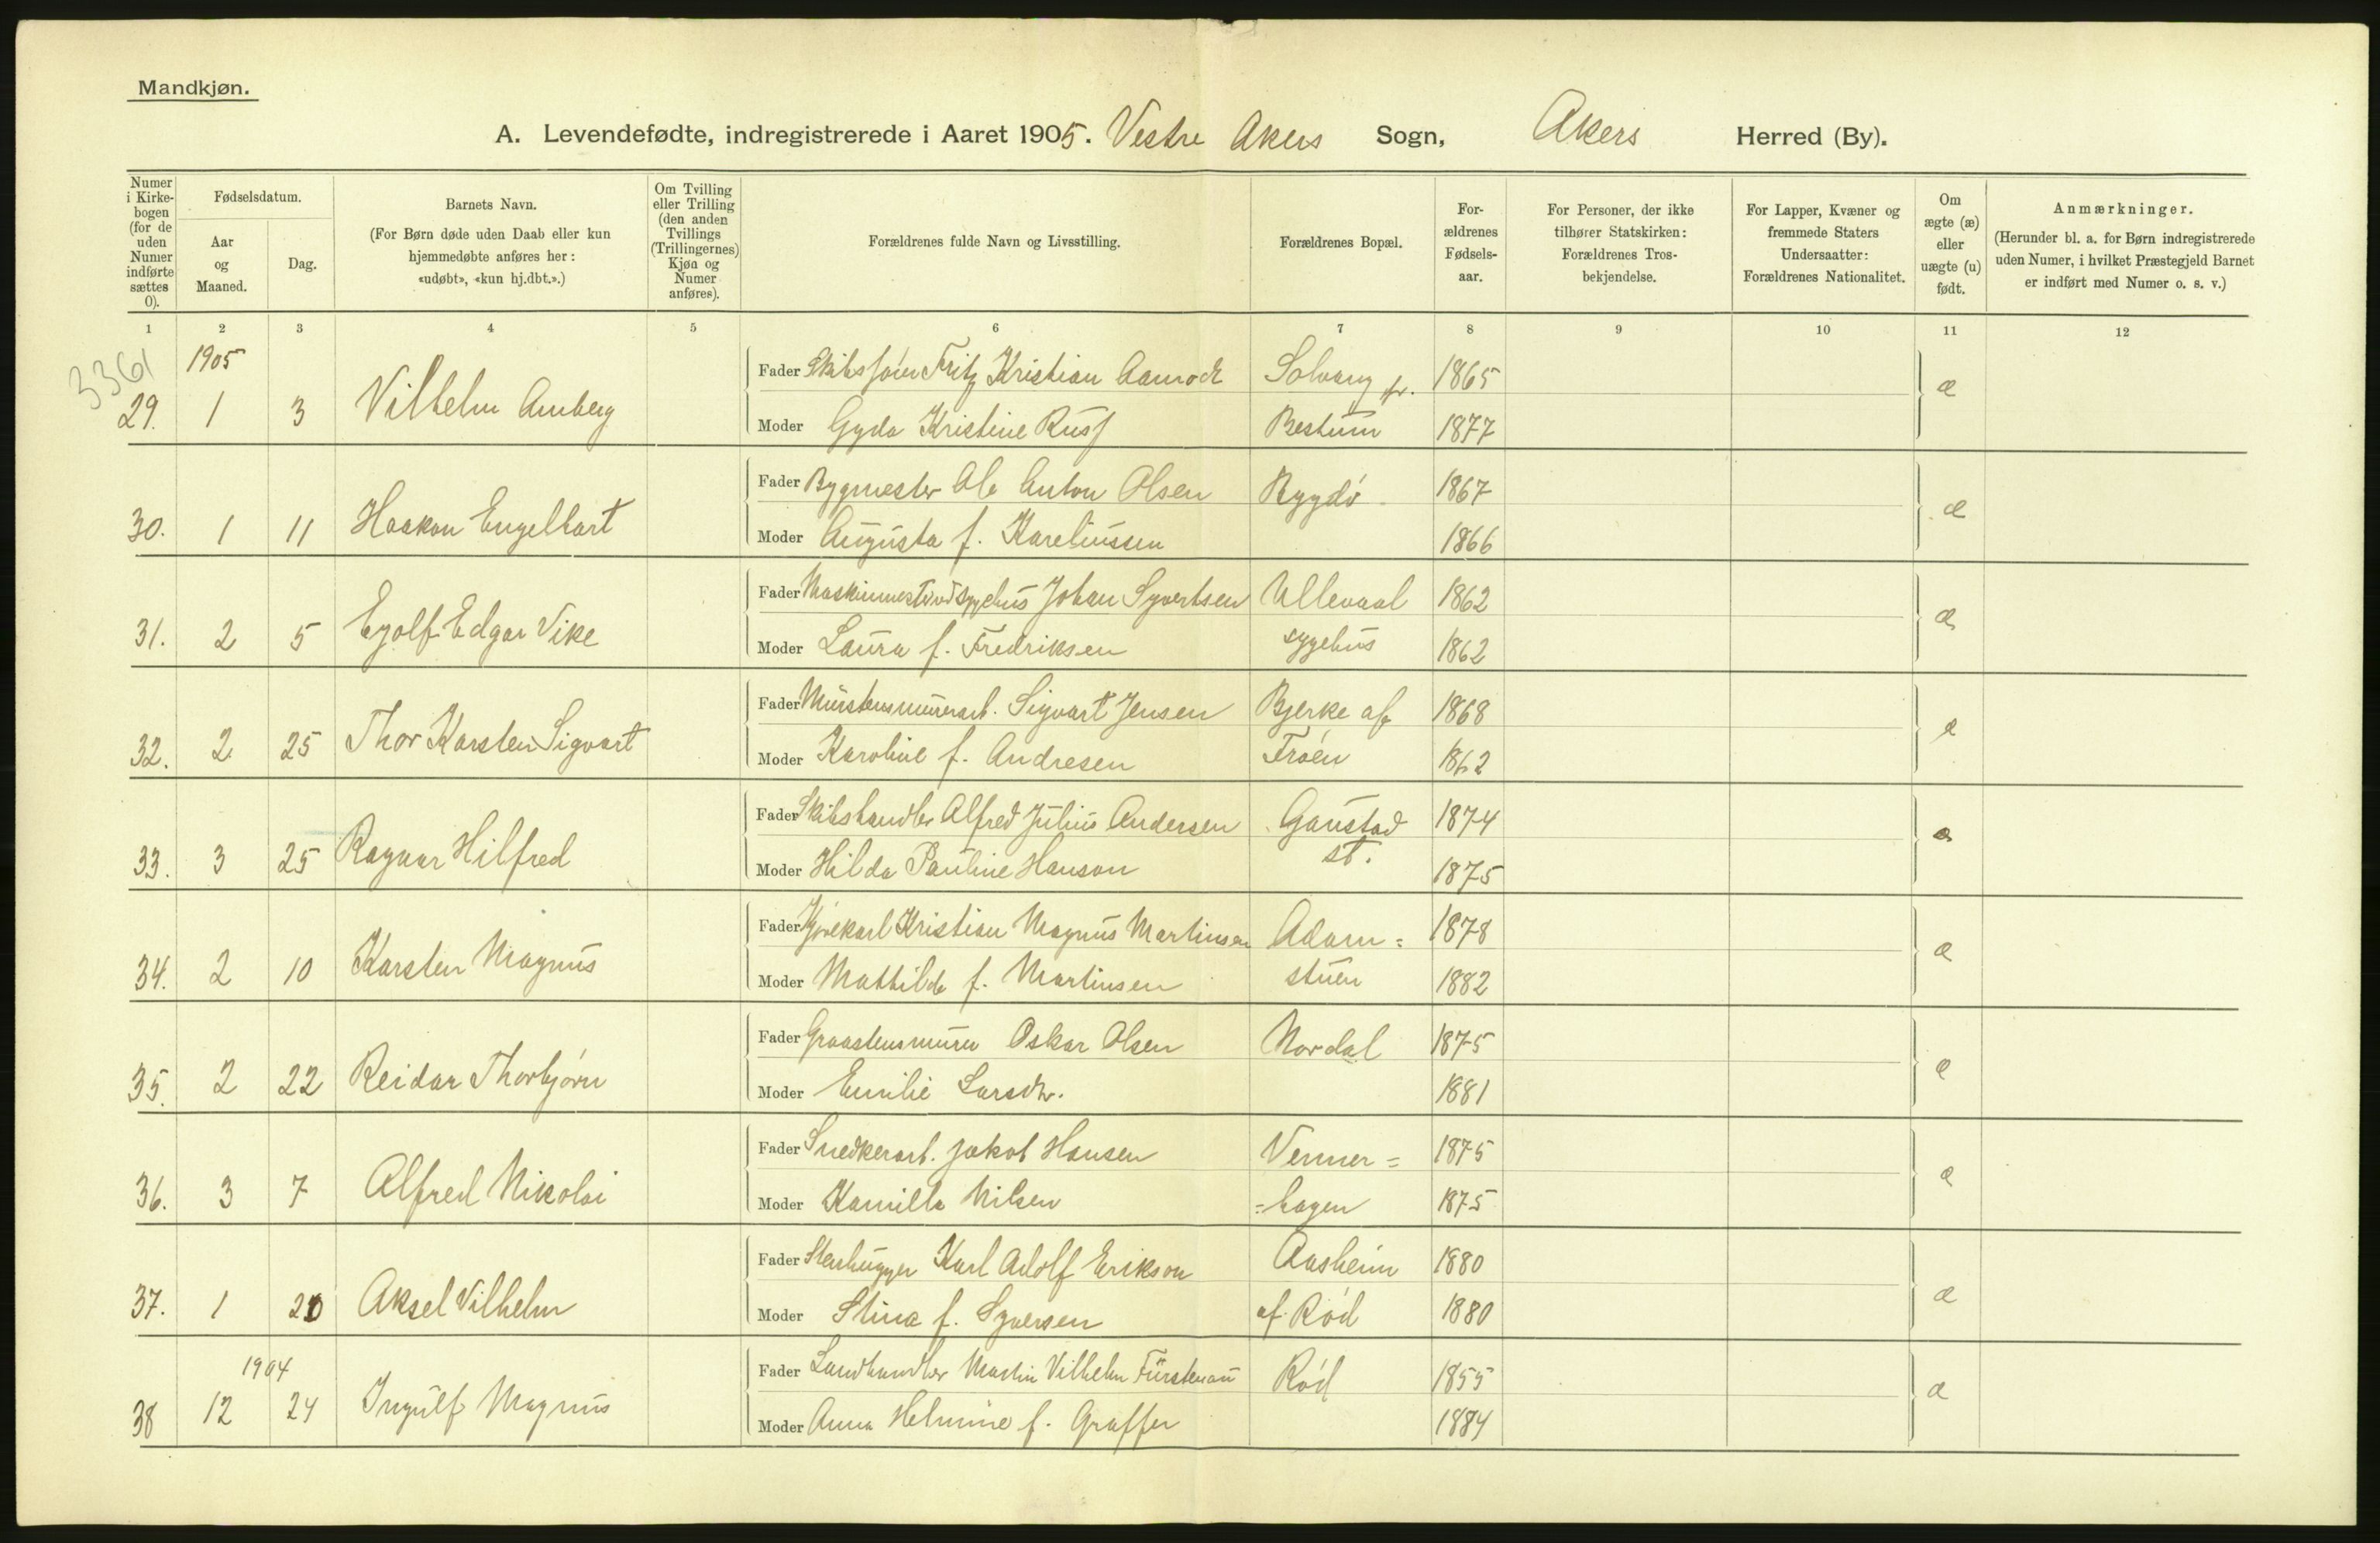 Mandkjøn.
A. Levendefødte, indregistrerede i Aaret 1905. Vestre Akers Sogn, Akers Herred (By).
Numer i Kirkebogen (for de uden Numer indførte sættes 0).
Fødselsdatum.
Aar og Maaned.
Dag.
Barnets Navn.
(For Børn døde uden Daab eller kun hjemmedøbte anføres her: «udøbt», «kun hj.dbt.».)
Om Tvilling eller Trilling (den anden Tvillings (Trillingernes) Kjøn og Numer anføres).
Forældrenes fulde Navn og Livsstilling.
Forældrenes Bopæl.
Forældrenes Fødselsaar.
For Personer, der ikke tilhører Statskirken: Forældrenes Trosbekjendelse.
For Lapper, Kvæner og fremmede Staters Undersaatter: Forældrenes Nationalitet.
Om ægte (æ) eller uægte (u) født.
Anmærkninger.
(Herunder bl. a. for Børn indregistrerede uden Numer, i hvilket Præstegjeld Barnet er indført med Numer o. s. v.)
1 2 3 4 5 6 7 8 9 10 11 12
3361
1905
Fader Fritz Kristian Solvang pr. 1865
29. 1 3 Vilhelm Amberg æ
Moder Gyda Kristine Bestum 1877
Fader Bygmester Ole Anton Olsen Bygdö 1867
30. 1 11 Haakon Engelhart æ
Moder Augusta f. Kareliussen 1866
Fader Johan Syvertsen Ullevaal 1862
31. 2 5 Eyolf Edgar Vike æ
Moder Laura f. Fredriksen sygehus 1862
Fader Sigvart Jensen Bjerke af 1868
32. 2 25 Thor Karsten Sigvart æ
Moder Karoline f. Andresen Fröen 1862
Fader Alfred Julius Andersen Gaustad 1874
33. 3 25 Ragnar Hilfred æ
Moder Hilda Pauline Hanson st. 1875
Fader Kjörekarl Kristian Magnus Martinsen Adam= 1878
34. 2 10 Karsten Magnus æ
Moder Mathilde f. Martinsen stuen 1882
Fader Graastensmurer Oskar Olsen Nordal 1875
35. 2 22 Reidar Thorbjörn æ
Moder Emilie Larsdtr. 1881
Fader Snedkerarb. Jakob Hansen Venner= 1875
36. 3 7 Alfred Nikolai æ
Moder Kamilla Nilsen =hagen 1875
Fader Stenhugger Karl Adolf Erikson Aasheim 1880
37. 1 20 Aksel Vilhelm æ
Moder Stina f. Syversen af. Röd 1880
1904
Fader Landhandler Martin Vilhelm Fürstenau Röd 1855
38 12 24 Ingulf Magnus æ
Moder Anna Helmine f. Graffer 1884